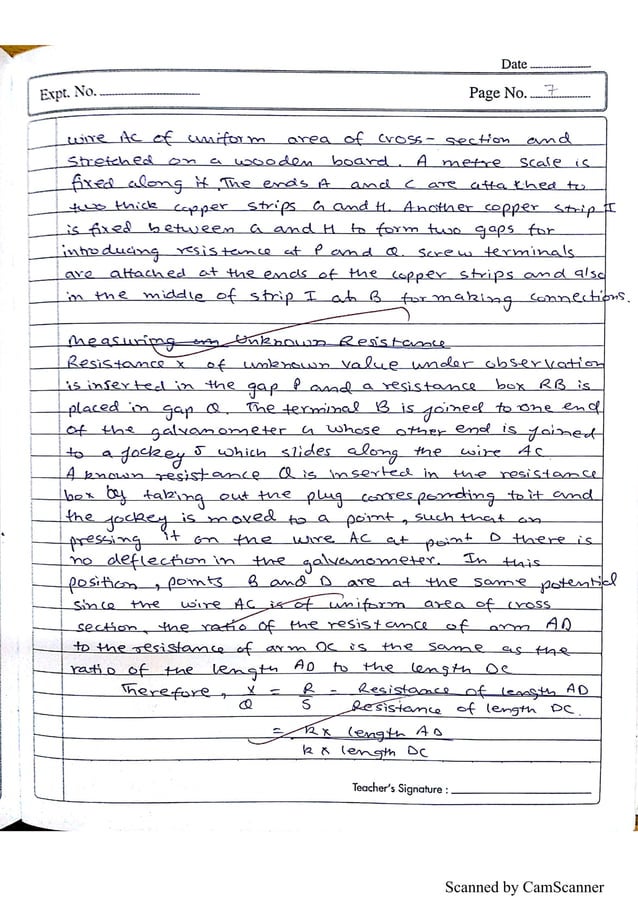 Date
Expt. No.
Page No. 7
wire AC of uniform area of cross-section and
stretched on a wooden board. A metre scale is
fixed along it. The ends A and C are attached to
two thick copper strips G and H. Another copper strip I
is fixed between G and H to form two gaps for
introducing resistance at P and Q. Screw terminals
are attached at the ends of the copper strips and also
in the middle of strip I at B for making connections.
Measuring an Unknown Resistance
Resistance x of unknown value under observation
is inserted in the gap P and a resistance box RB is
placed in gap Q. The terminal B is joined to one end
of the galvanometer G whose other end is joined
to a jockey J which slides along the wire AC
A known resistance Q is inserted in the resistance
box by taking out the plug corresponding to it and
the jockey is moved to a point, such that on
pressing it on the wire AC at point D there is
no deflection in the galvanometer. In this
position, points B and D are at the same potential
since the wire AC is of uniform area of cross
section, the ratio of the resistance of arm AD
to the resistance of arm DC is the same as the
ratio of the length AD to the length DC
Therefore, X/Q = R/S = Resistance of length AD / Resistance of length DC.
= k x length AD / k x length DC
Teacher's Signature :
Scanned by CamScanner